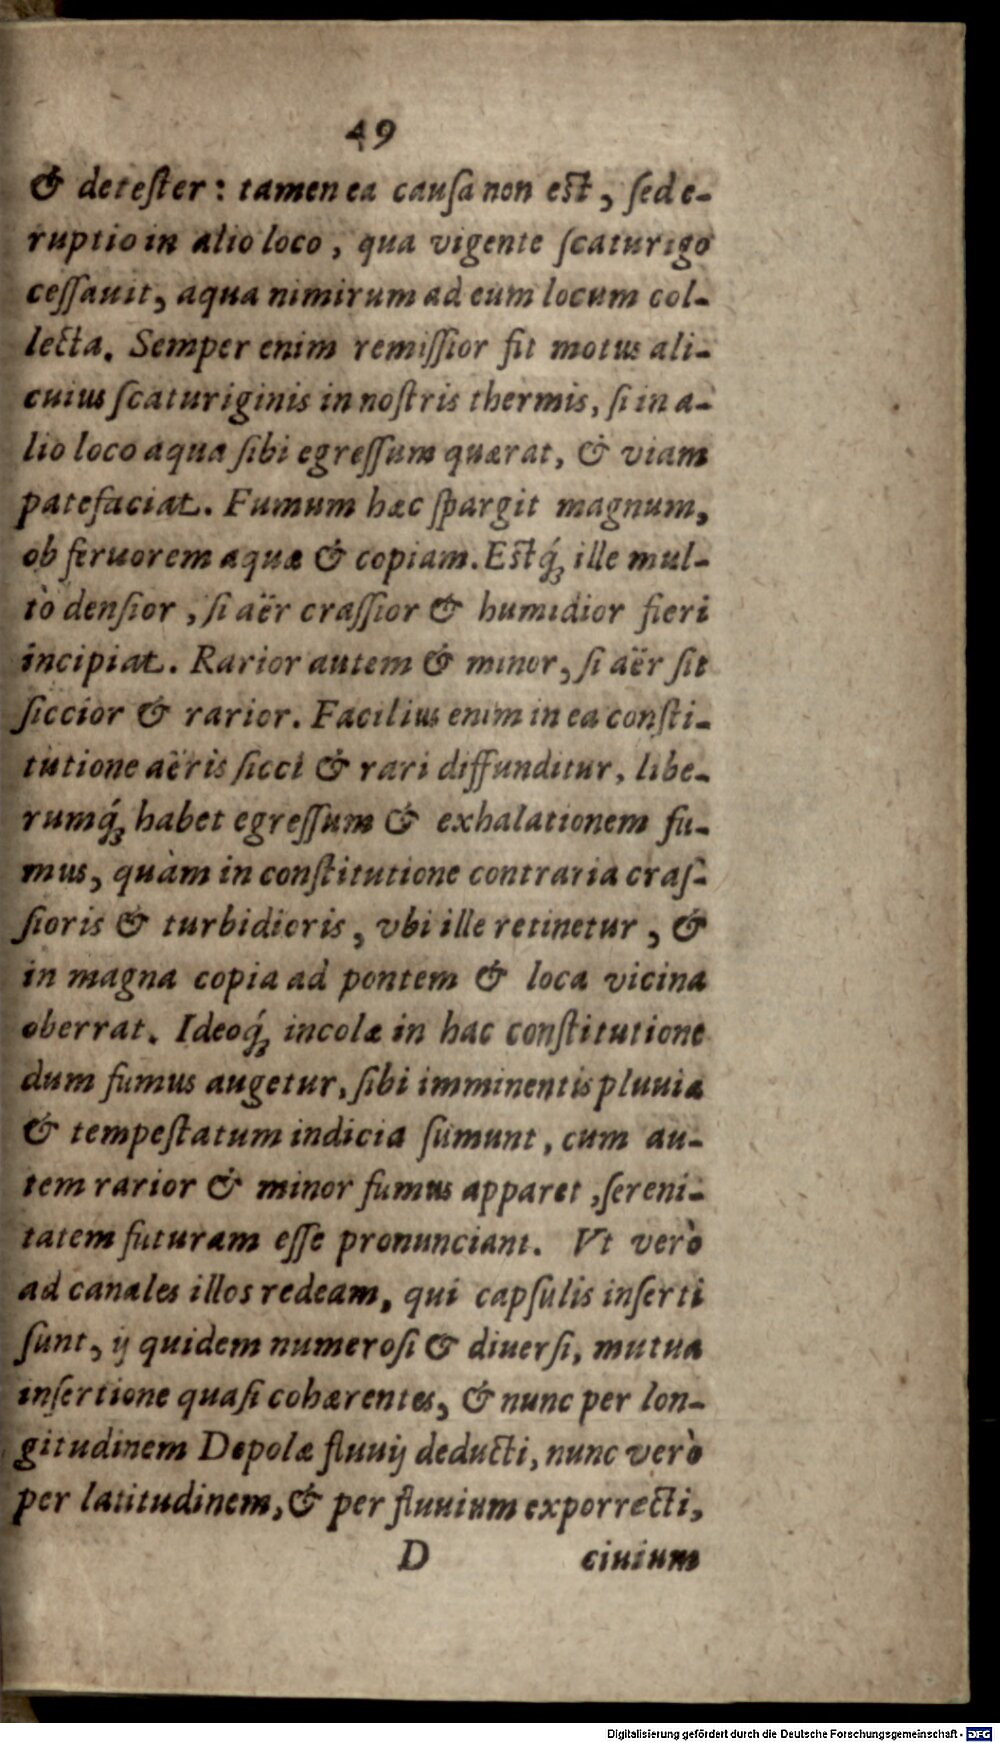 49
& detester: tamen ea causa non est, sed e-
ruptio in alio loco, qua vigente scaturigo
cessauit, aqua nimirum ad eum locum col-
lecta. Semper enim remissior fit motus ali-
cuius scaturiginis in nostris thermis, si in a-
lio loco aqua sibi egressum quærat, & viam
patefaciat. Fumum hæc spargit magnum,
ob feruorem aquæ & copiam. Estq́; ille mul-
tò densior, si aër crassior & humidior fieri
incipiat. Rarior autem & minor, si aër sit
siccior & rarior. Facilius enim in ea consti-
tutione aëris sicci & rari diffunditur, libe-
rumq́; habet egressum & exhalationem fu-
mus, quàm in constitutione contraria cras-
sioris & turbidioris, vbi ille retinetur, &
in magna copia ad pontem & loca vicina
oberrat. Ideoq́; incolæ in hac constitutione
dum fumus augetur, sibi imminentis pluuia
& tempestatum indicia sumunt, cum au-
tem rarior & minor fumus apparet, sereni-
tatem futuram esse pronunciant. Vt verò
ad canales illos redeam, qui capsulis inserti
sunt, ij quidem numerosi & diuersi, mutua
insertione quasi cohærentes, & nunc per lon-
gitudinem Depolæ fluuij deducti, nunc verò
per latitudinem, & per fluuium exporrecti,
D ciuium
Digitalisierung gefördert durch die Deutsche Forschungsgemeinschaft - DFG